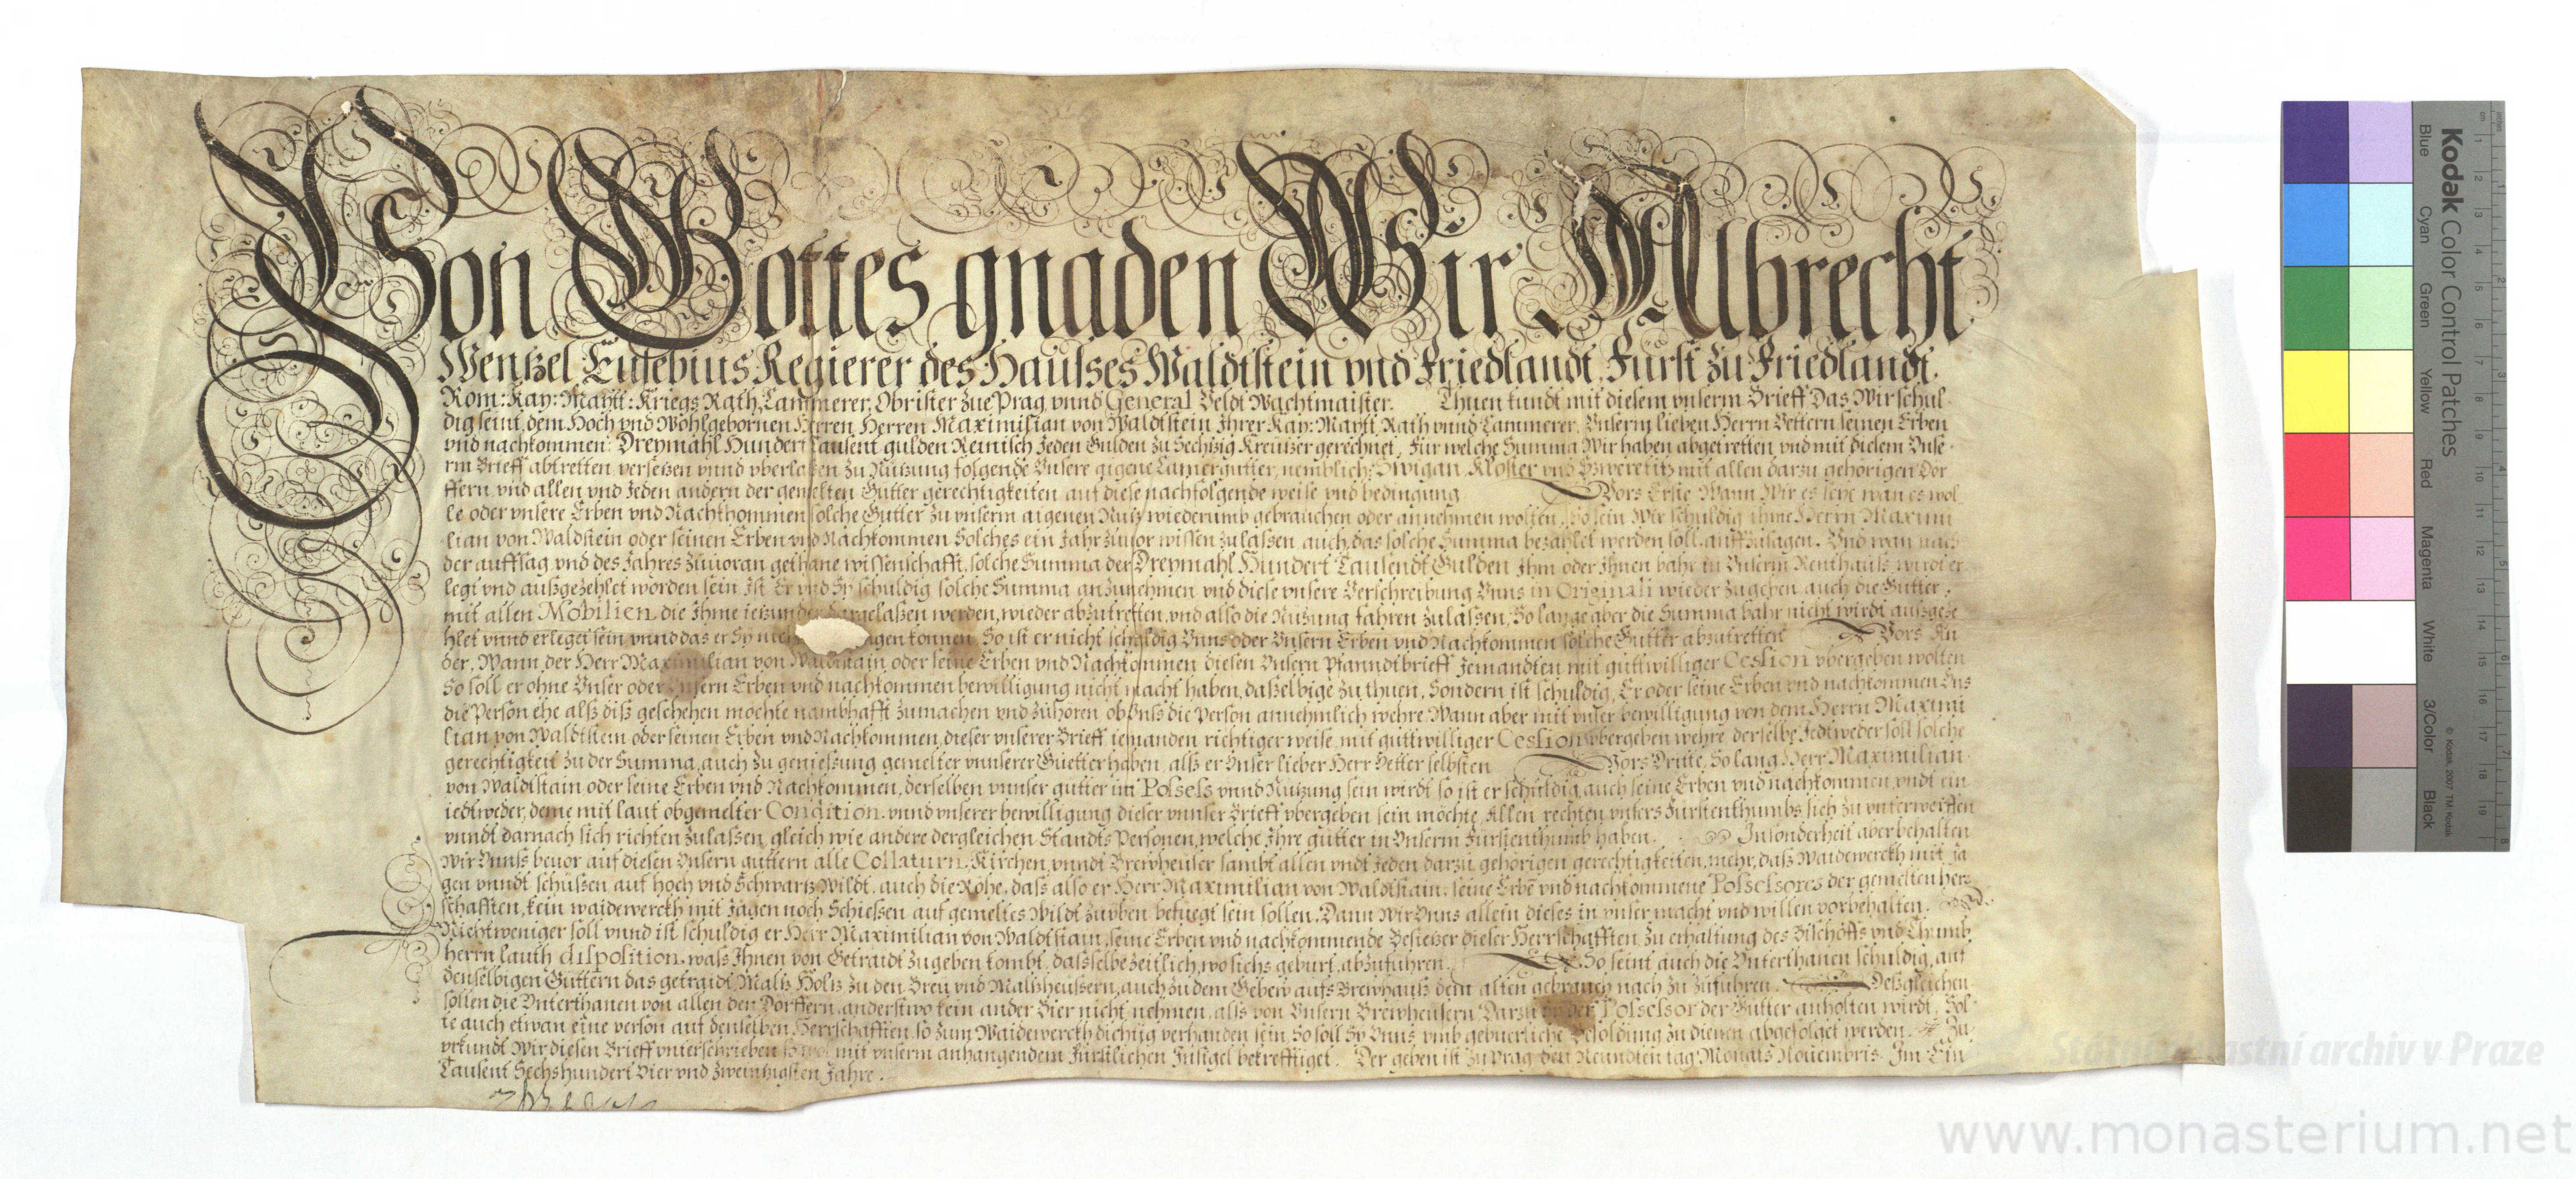 Von Gottes gnaden Wir Albrecht
Wentzel Eusebius Regierer des Hausses Waldtstein vnd Friedlandt, Fürst zu Friedlandt.
Röm: Kay: Maytt: Kriegs Rath, Cammerer, Obrister zue Prag vnnd General Veldt Wachtmaister. Thuen kundt mit diesem vnserm Brieff Das Wir schul-
dig seint, dem Hoch vnd Wohlgebornen Herren, Herren Maximilian von Waldtstein Ihrer Kay: Maytt: Rath vnnd Cammerer, Vnserm lieben Herrn Vettern seinen Erben
vnd nachkommen: Dreymahl Hundert tausent gulden Reinisch Jeden Gulden zu Sechtzig Kreutzer gerechnet, Für welche Summa Wir haben abgetretten, vnd mit diesem Vnse-
rm Brieff abtretten versetzen vnnd vberlassen zu Nutzung folgende Vnsere eigene Camergütter, nemblich: Swigan, Kloster vnd mit allen darzu gehörigen Dör
ffern, vnd allen vnd Jeden andern der gemelten Gütter gerechtigkeiten auf diese nachfolgende weise vnd bedingung Vors Erste Wann Wir es seye wan es wol
le oder vnsere Erben vnd Nachkhommen solche Gütter zu vnserm aigenen Nutz wiederumb gebrauchen oder annehmen wolten, So sein Wir schuldig ihme Herrn Maximi
lian von Waldstein oder seinen Erben vnd Nachkommen Solches ein Jahr zuuor wissen zulassen auch, das solche Summa bezahlet werden soll, auffzusagen. Vnd wan nach
der auffsag vnd des Jahres zuuoran gethane wissenschafft, solche Summa der Dreymahl Hundert Tausendt Gulden Ihm oder Ihnen bahr in Vnserm Renthauss wirdt er
legt vnd aussgezehlet worden sein Ist Er vnd Sy schuldig solche Summa anzunehmen vnd diese vnsere Verschreibung Vnns in Originali wieder zugeben auch die Gütter,
mit allen Mobilien die Ihme ietzund dargelassen werden, wieder abzutretten, vnd also die Nutzung fahren zulassen, So lange aber die Summa bahr nicht wirdt aussgeze
hlet vnnd erleget sein vnnd das er Sy können, So ist er nicht schuldig Vnns oder Vnsern Erben vnd Nachkommen solche Gütter abzutretten Vors An
der, Wann der Herr Maximilian von Waldtstain oder seine Erben vnd Nachkommen diesen Vnsern Pfanndtbrieff Jemandten mit guttwilliger Cession vbergeben wolten
So soll er ohne Vnser oder Vnsern Erben vnd nachkommen bewilligung nicht macht haben, dasselbige zu thuen, Sondern ist schuldig, Er oder seine Erben vnd nachkommen Vns
die Person ehe alss diss geschehen möchte nambhafft zumachen vnd zuhören ob Vnss die Person annehmlich wehre. Wann aber mit vnser bewilligung von dem Herrn Maximi
lian von Waldtstein oder seinen Erben vnd Nachkommen, dieser vnserer Brieff iemanden richtiger weise, mit guttwilliger Cession vbergeben wehre, derselbe Jedtweder soll solche
gerechtigkeit zu der Summa, auch zu geniessung gemelter vnnserer Güetter haben, alss er Vnser lieber Herr Vetter selbsten Vors Dritte, So lang Herr Maximilian
von Waldtstain oder seine Erben vnd Nachkommen, derselben vnnser gütter im Possess vnnd Nutzung sein wirdt so ist er schuldig auch seine Erben vnd nachkommen, vndt ein
iedtweder, deme mit laut obgemelter Condition, vnnd vnserer bewilligung dieser vnnser Brieff vbergeben sein möchte, Allen rechten vnsers Fürstenthumbs sich zu vnterwerffen
vnndt darnach sich richten zulassen, gleich wie andere dergleichen Standts Personen, welche Ihre gütter in Vnserm Fürstenthumb haben. Insonderheit aber behalten
Wir Vnnss beuor auf diesen Vnsern güttern alle Collaturn, Kirchen, vnndt Brewheuser sambt allen vndt Jeden darzu gehörigen gerechtigkeiten, mehr, dass Waidewerckh mit Ja
gen vnndt schüssen auf hoch vnd Schwartz Wildt, auch die Röhe, dass also er Herr Maximilian von Waldtstain, seine Erbe vnd nachkommene Possessores der gemelten herr
schafften, kein waidewerckh mit Jagen noch Schiessen auf gemeltes Wildt zu vben befuegt sein sollen. Dann Wir Vnns allein dieses in vnser macht vnd willen vorbehalten.
Nicht weniger soll vnnd ist schuldig er Herr Maximilian von Waldtstain, seine Erben vnd nachkommende Besietzer dieser Herrschafften, zu erhaltung des Bischoffs vnd Thumb
herrn lauth disposition, wass Ihnen von Getraidt zugeben kombt, dasselbe zeitlich, wo sichs gebürt, abzuführen. So seint auch die Vnterthanen schuldig, auf
denselbigen Güttern das getraidt, Maltz, Holtz zu den Breu vnd Maltzheussern, auch zu dem Gebew aufs Brewhauss dem alten gebrauch nach zu zuführen. Dessgleichen
sollen die Vnterthanen von allen den Dörffern, anderstwo kein ander Bier nicht nehmen, alss von Vnsern Brewheusern Darzu Possessor der Gütter anholten wirdt, Sol
te auch etwan eine person auf denselben Herrschafften, so zum Waidewerckh dichtig verhanden sein, So soll Sy Vnns vmb gebuerliche Besoldung zu dienen abgefolget werden. Zu
vrkundt Wir diesen Brieff vnterschrieben mit vnserm anhangendem Fürstlichen Insigel bekrefftiget. Der geben ist zu Prag den Neundten tag Monats Nouembris Im Ein
Tausent Sechshundert Vier vnd zweintzigsten Jahre.
Kodak Color Control Patches
Blue Cyan Green Yellow Red Magenta White 3/Color Black
© Kodak, 2007 TM: Kodak
Státní oblastní archiv v Praze
www.monasterium.net